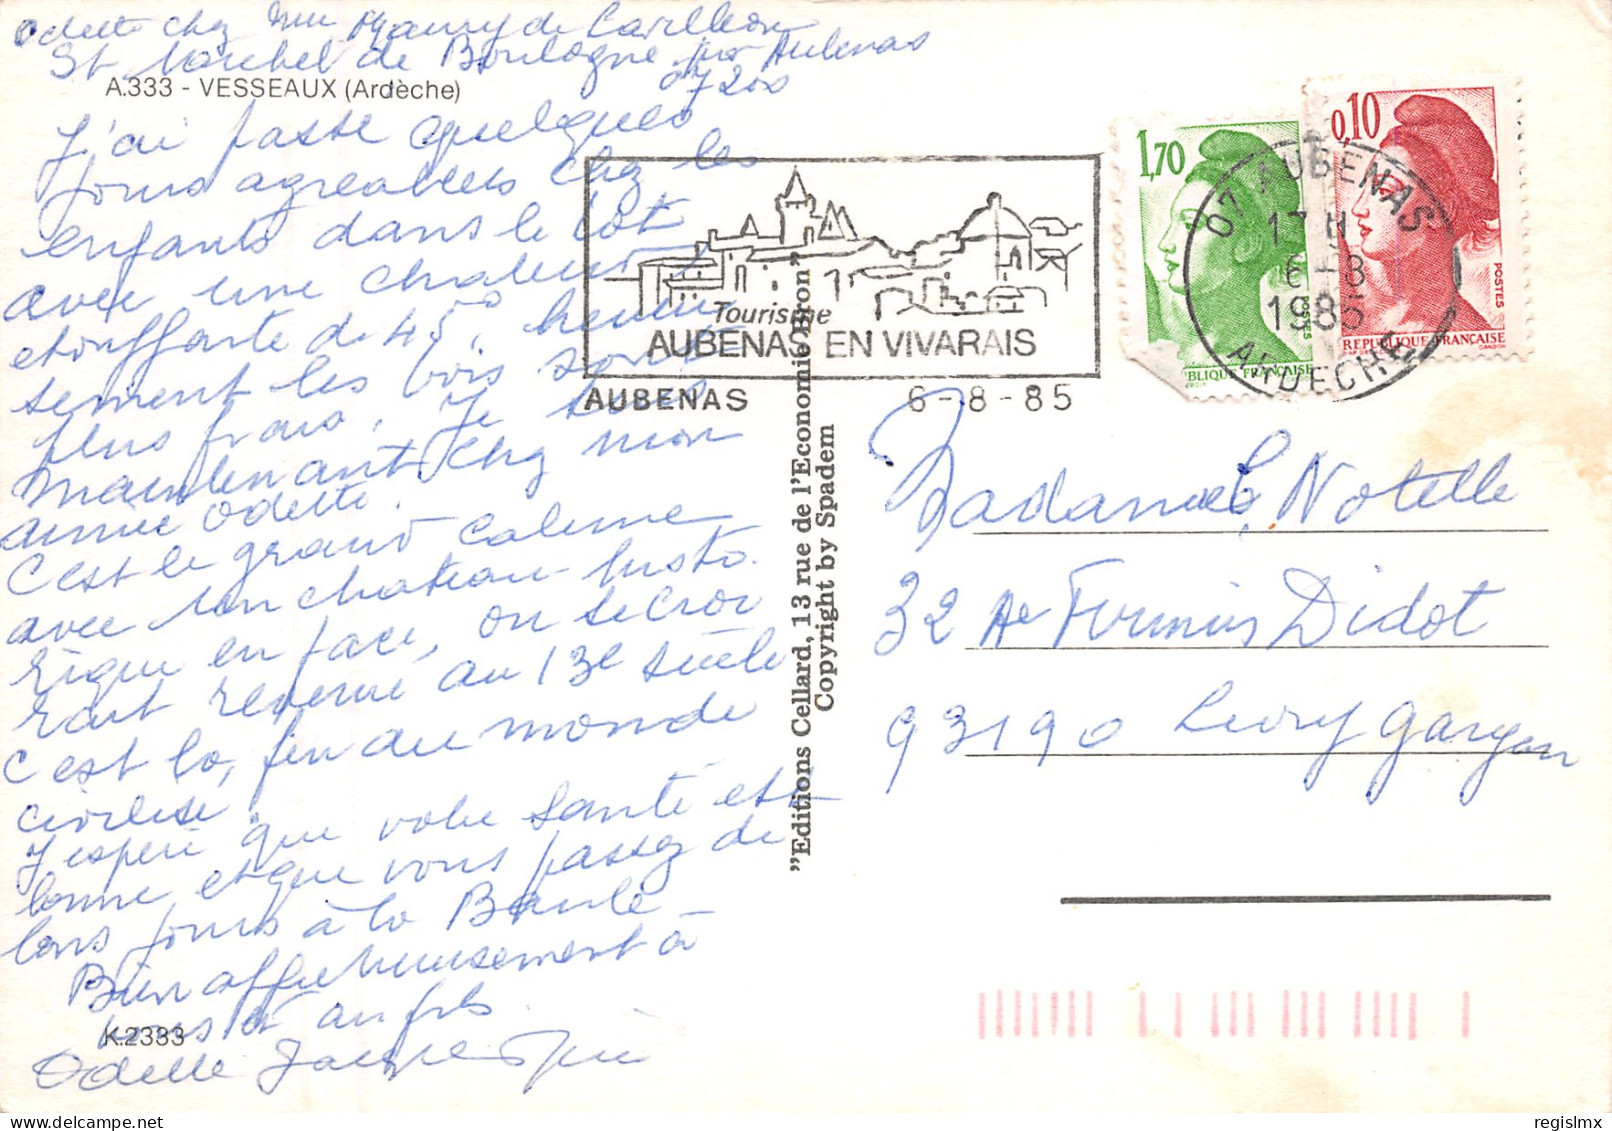 Odette chez Mme Maurry de Cavilleon
St Michel de Boulogne par Aubenas
07200
A.333 - VESSEAUX (Ardèche)
J'ai passé quelques
jours agréables chez les
enfants dans le Lot
avec une chaleur
étouffante de 45°, heureu
sement les bois sont
plus frais. Je suis
maintenant chez mon
amie Odette.
C'est le grand calme
avec un chateau histo.
rique en face, on se croi
rait revenu au 13e siècle
c'est la fin du monde
civilisé.
J'espère que votre santé est
bonne et que vous passez de
bons jours à la Baule
Bien affectueusement à
vous et au fils
Odette Jacqueline
K.2333
Tourisme
AUBENAS EN VIVARAIS
AUBENAS 6-8-85
"Editions Cellard, 13 rue de l'Economie Bron"
Copyright by Spadem
1,70
POSTES
BLIQUE FRANÇAISE
0,10
POSTES
REPUBLIQUE FRANÇAISE
GANDON
07 AUBENAS
17 H
6-8
1985
ARDECHE
Madame Notelle
32 Ae Firmin Didot
93190 Livry Gargan
regislmx